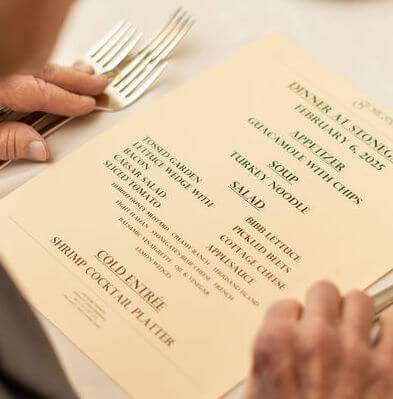 DINNER AT STONEGA
FEBRUARY 6, 2025
APPETIZER
GUACAMOLE WITH CHIPS
SOUP
TURKEY NOODLE
SALAD
TOSSED GARDEN
LETTUCE WEDGE WITH
BACON
CAESAR SALAD
SLICED TOMATO
BIBB LETTUCE
PICKLED BEETS
COTTAGE CHEESE
APPLESAUCE
HONEY MUSTARD CREAMY RANCH THOUSAND ISLAND
LIGHT ITALIAN STONEGATE'S BLUE CHEESE FRENCH
BALSAMIC VINAIGRETTE OIL & VINEGAR
LEMON WEDGES
COLD ENTRÉE
SHRIMP COCKTAIL PLATTER